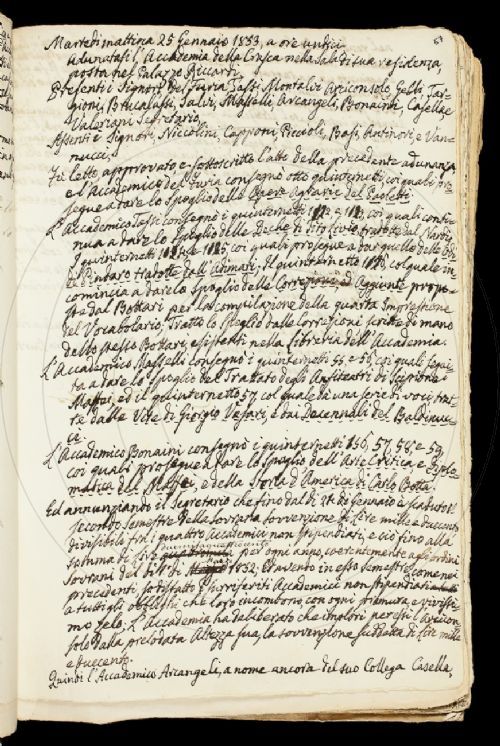 Martedì mattina 25 Gennaio 1833, a ore undici
adunatasi l'Accademia della Crusca nella Sala di sua residenza,
posta nel Palazzo Riccardi,
Presenti i Signori Del Furia, Zatti, Montalvi Arciconsolo, Gelli, Tar-
gioni, Bencalassi, Salvi, Masselli, Arcangeli, Bonaini, Casella, e
Valeriani Segretario,
Assenti i Signori, Niccolini, Capponi, Puccioli, Basi, Antinori, e Van-
nucci,
Fu letto, approvato, e sottoscritto l'atto della precedente adunanza,
e l'Accademico Del Furia consegnò otto quinternetti, coi quali pro-
segue a dare lo Spoglio delle Opere Agrarie del Paoletti.
L'Accademico Zatti consegnò i quinternetti coi quali conti-
nua a dare lo Spoglio delle Deche di Tito Livio tradotte dal Nardi,
I quinternetti e 1185, coi quali prosegue a dar quello delle Odi
di Pindaro tradotte dall'Adimari; Il quinternetto col quale in-
comincia a dare lo Spoglio delle Correzioni ed Aggiunte propo-
ste dal Bottari per la compilazione della quarta Impressione
del Vocabolario, Tratto lo Spoglio dalle Correzioni scritte di mano
dello stesso Bottari, esistenti nella Libreria dell'Accademia.
L'Accademico Masselli consegnò i quinternetti 55, e 56 coi quali segui-
ta a dare lo Spoglio del Trattato degli Anfiteatri di Scipione
Maffei, ed il quinternetto 57, col quale dà una serie di voci trat-
te dalle Vite di Giorgio Vasari, e dai Decennali del Baldinuc-
ci.
L'Accademico Bonaini consegnò i quinternetti 156, 57, 58, e 59,
coi quali prosegue a dare lo Spoglio dell'Arte Critica e Diplo-
matica del Maffei, e della Storia d'America di Carlo Botta.
Ed annunziando il Segretario che fino dal dì Gennaio è scaduto il
secondo Semestre della sovrana sovvenzione di Lire mille e duecento
divisibile fra i quattro Accademici non stipendiati, e ciò fino alla
somma di Lire per ogni anno, coerentemente agli ordini
Sovrani del dì 1832, ed avendo in esso semestre, come nei
precedenti, soddisfatto i surriferiti Accademici non stipendiati
a tutti gli obblighi, che loro incombono, con ogni premura, e vivissi-
mo zelo, L'Accademia ha deliberato che implori per essi l'Arcicon-
solo dalla prelodata Altezza sua, la sovvenzione suddetta di Lire mille
e duecento.
Quindi l'Accademico Arcangeli, a nome ancora del suo Collega Casella,